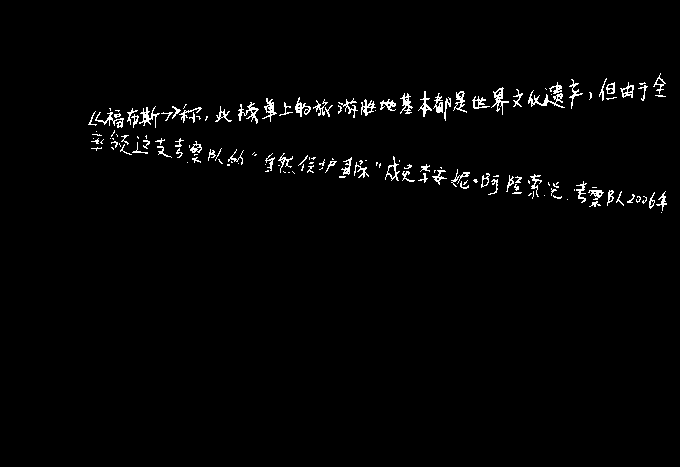 《福布斯》称,此榜单上的旅游胜地基本都是世界文化遗产,但由于全
率领这支考察队的“自然保护国际”成员李安妮·阿隆索说,考察队2006年